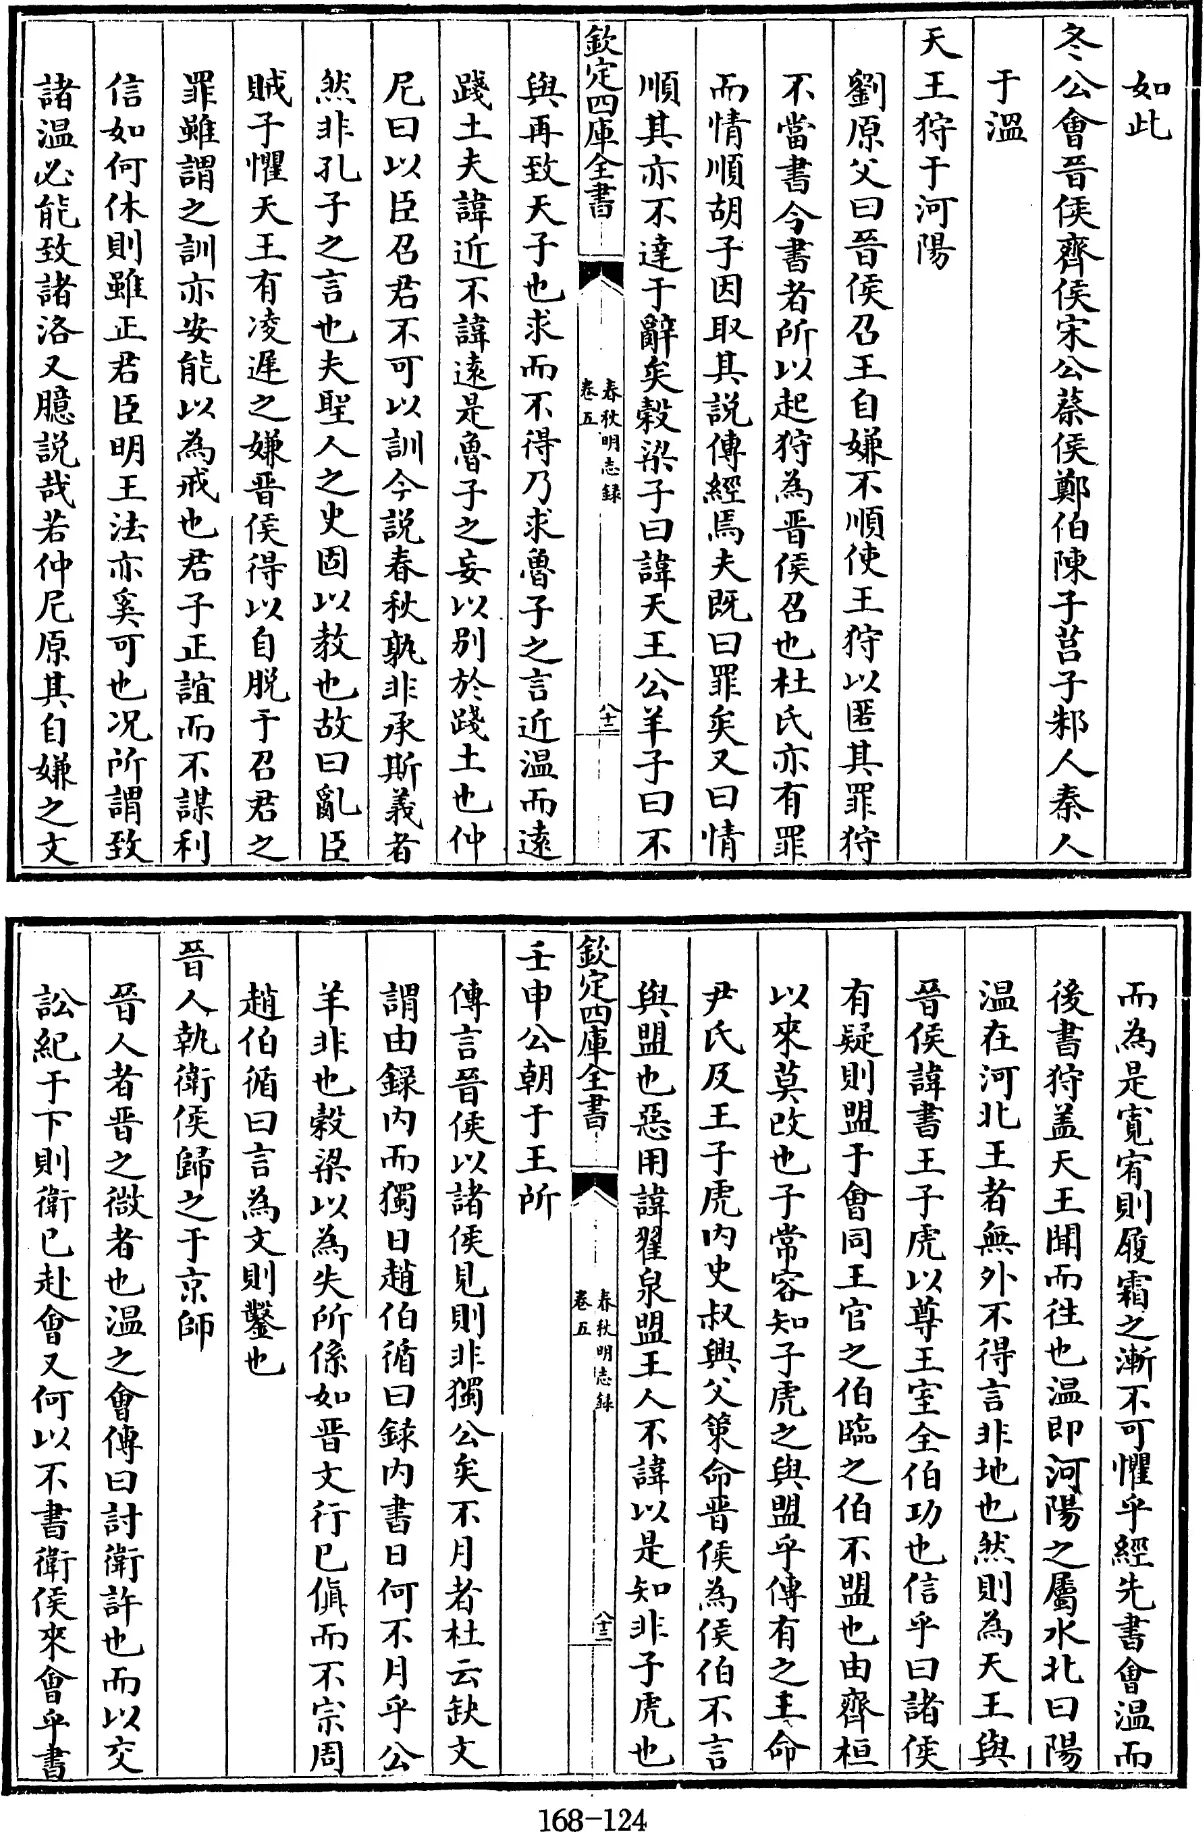 如此
冬公會晉侯齊侯宋公蔡侯鄭伯陳子莒子邾人秦人
于溫
天王狩于河陽
劉原父曰晉侯召王自嫌不順使王狩以匿其罪狩
不當書今書者所以起狩為晉侯召也杜氏亦有罪
而情順胡子因取其説傳經焉夫既曰罪矣又曰情
順其亦不達于辭矣穀梁子曰諱天王公羊子曰不
欽定四庫全書
春秋明志録
卷五
八十二
與再致天子也求而不得乃求魯子之言近温而遠
踐土夫諱近不諱遠是魯子之妄以别於踐土也仲
尼曰以臣召君不可以訓今説春秋孰非承斯義者
然非孔子之言也夫聖人之史固以教也故曰亂臣
賊子懼天王有凌遲之嫌晉侯得以自脱于召君之
罪雖謂之訓亦安能以為戒也君子正誼而不謀利
信如何休則雖正君臣明王法亦奚可也况所謂致
諸温必能致諸洛又臆説哉若仲尼原其自嫌之文
而為是寛宥則履霜之漸不可懼乎經先書會温而
後書狩盖天王聞而往也温即河陽之屬水北曰陽
温在河北王者無外不得言非地也然則為天王與
晉侯諱書王子虎以尊王室全伯功也信乎曰諸侯
有疑則盟于會同王官之伯臨之伯不盟也由齊桓
以來莫改也子常容知子虎之與盟乎傳有之王命
尹氏及王子虎内史叔興父策命晉侯為侯伯不言
與盟也惡用諱翟泉盟王人不諱以是知非子虎也
欽定四庫全書
春秋明志録
卷五
八十三
壬申公朝于王所
傳言晉侯以諸侯見則非獨公矣不月者杜云缺文
謂由録内而獨日趙伯循曰録内書日何不月乎公
羊非也穀梁以為失所係如晉文行已傎而不宗周
趙伯循曰言為文則鑿也
晉人執衛侯歸之于京師
晉人者晉之微者也温之會傳曰討衛許也而以交
訟紀于下則衛已赴會又何以不書衛侯來會乎書
168-124